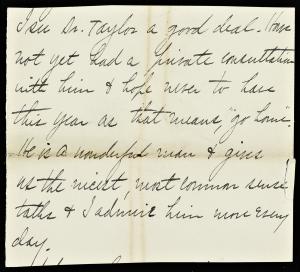 I see Dr. Taylor a good deal. Have
not yet had a private consultation
with him & hope never to have
this year as that means, "go home".
He is a wonderful man & gives
us the nicest, most common sense
talks & I admire him more every
day.